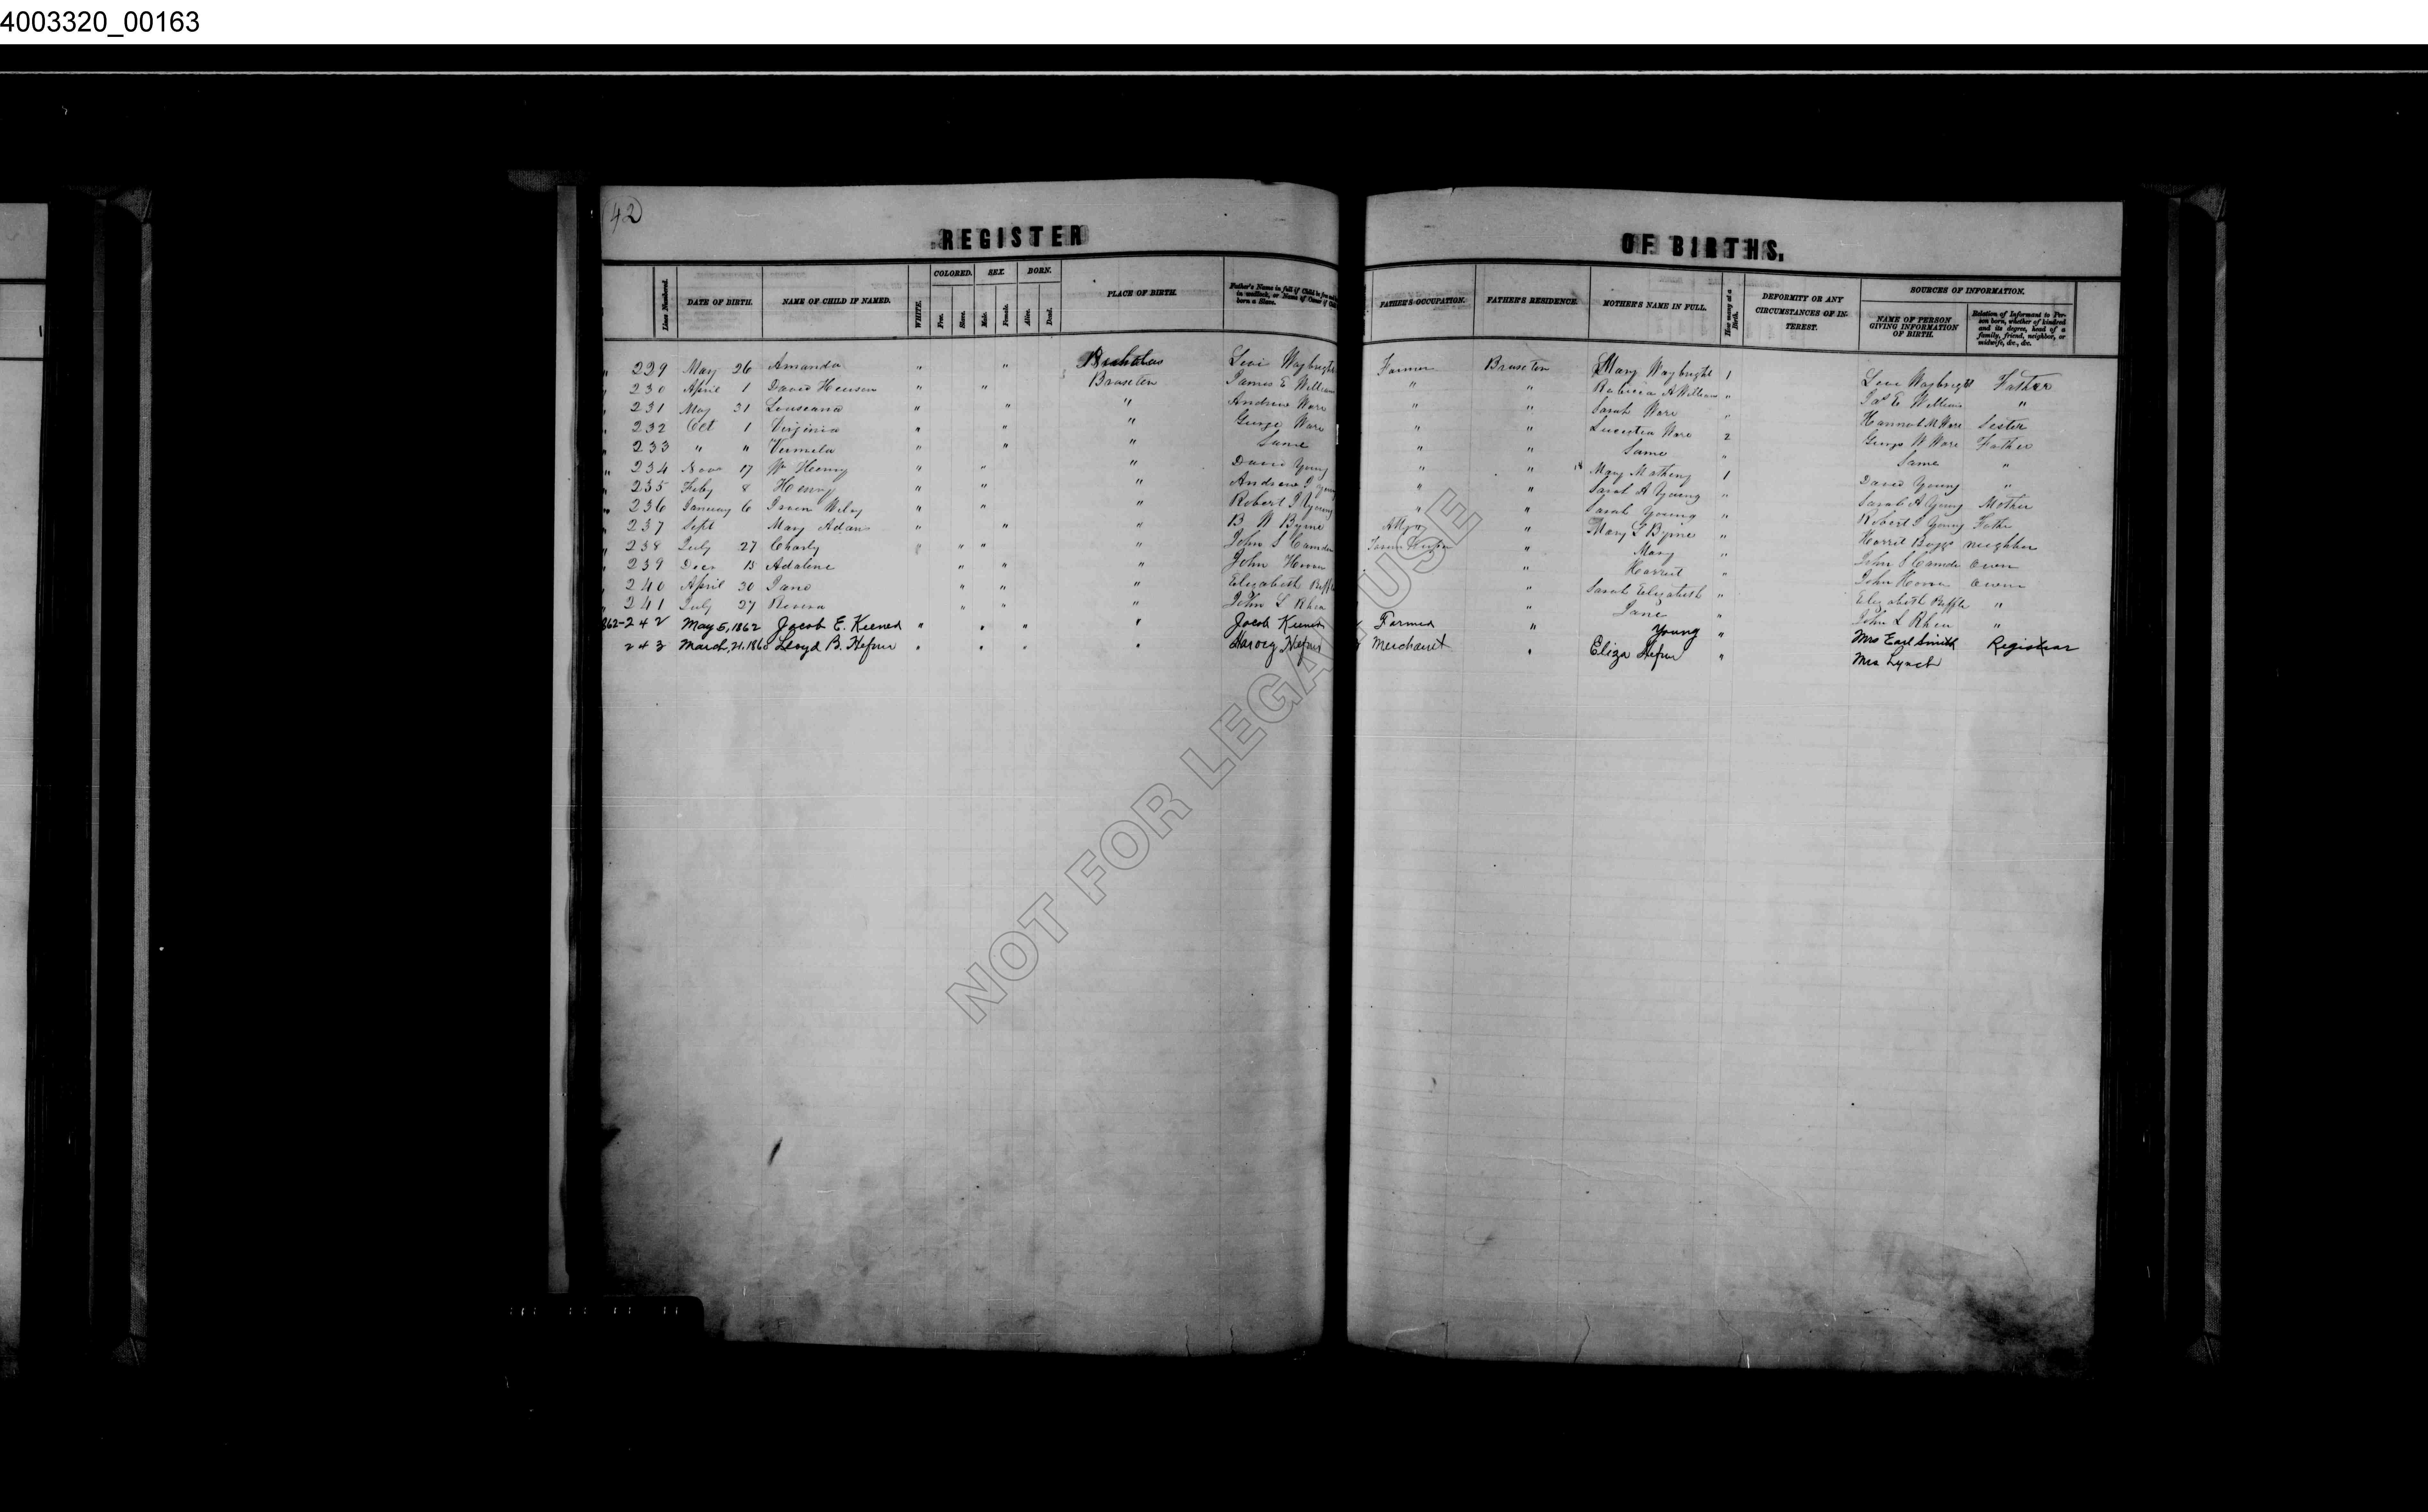 4003320_00163
42
REGISTER OF BIRTHS.
Lines Numbered. DATE OF BIRTH. NAME OF CHILD IF NAMED. WHITE. COLORED. Free. Slave. SEX. Male. Female. BORN. Alive. Dead. PLACE OF BIRTH. Father's Name in full if Child be free and born in wedlock, or Name of Owner if Child born a Slave. FATHER'S OCCUPATION. FATHER'S RESIDENCE. MOTHER'S NAME IN FULL. How many at a Birth. DEFORMITY OR ANY CIRCUMSTANCES OF INTEREST. SOURCES OF INFORMATION. NAME OF PERSON GIVING INFORMATION OF BIRTH. Relation of Informant to Person born, whether of kindred and its degree, head of a family, friend, neighbor, or midwife, &c., &c.
" 229 May 26 Amanda " " Levi Waybright Farmer Braxton Mary Waybright 1 Levi Waybright Father
" 230 April 1 David " " Braxton James E William " " A William " Jas E. William "
" 231 May 31 Louseana " " " Andrew Ware " " Sarah Ware " Hannah M Ware Sister
" 232 Oct 1 Virginia " " " George Ware " " Lucretia Ware 2 George W Ware Father
" 233 " " " " " Same " " Same " Same "
" 234 Novr 17 Wm Henry " " " David Young " " Mary Matheny 1 David Young "
" 235 Feby 8 Henry " " " Andrew Young " " Sarah A Young " Sarah A Young Mother
" 236 January 6 " " " Robert Young " " Sarah Young " Robert Young Father
" 237 Sept Mary Adan " " " B W Byrne Atty " Mary L Byrne " Harrit Boggs neighbor
" 238 July 27 Charly " " " John S Camden " Mary " John S Camden Owen
" 239 Decr 15 Adaline " " " John " Harriet " John Owen
" 240 April 30 Jane " " " Elizabeth " Sarah Elizabeth " Elizabeth "
" 241 July 27 " " " John L Rhea " Jane " John L Rhea "
1862-242 May 5, 1862 Jacob E. Keener " " " " Jacob Keener Farmer " Young " Mrs Earl Smith Registrar
243 March, 21, 1860 Lloyd B. Hefner " " " " Harvey Hefner Merchant " Eliza Hefner " Mrs Lynch
NOT FOR LEGAL USE